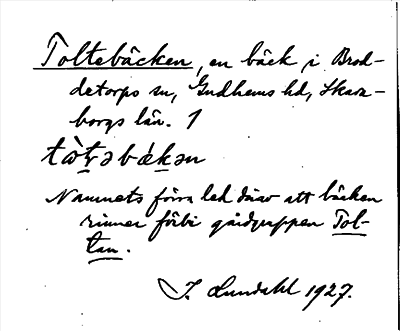 Toltebäcken, en bäck i Brod-
detorps sn, Gudhems hd, Skara-
borgs län. 1
tòtəbǽkən
Namnets förra led därav att bäcken
rinner förbi gårdgruppen Tol-
tan.
I. Lundahl 1927.